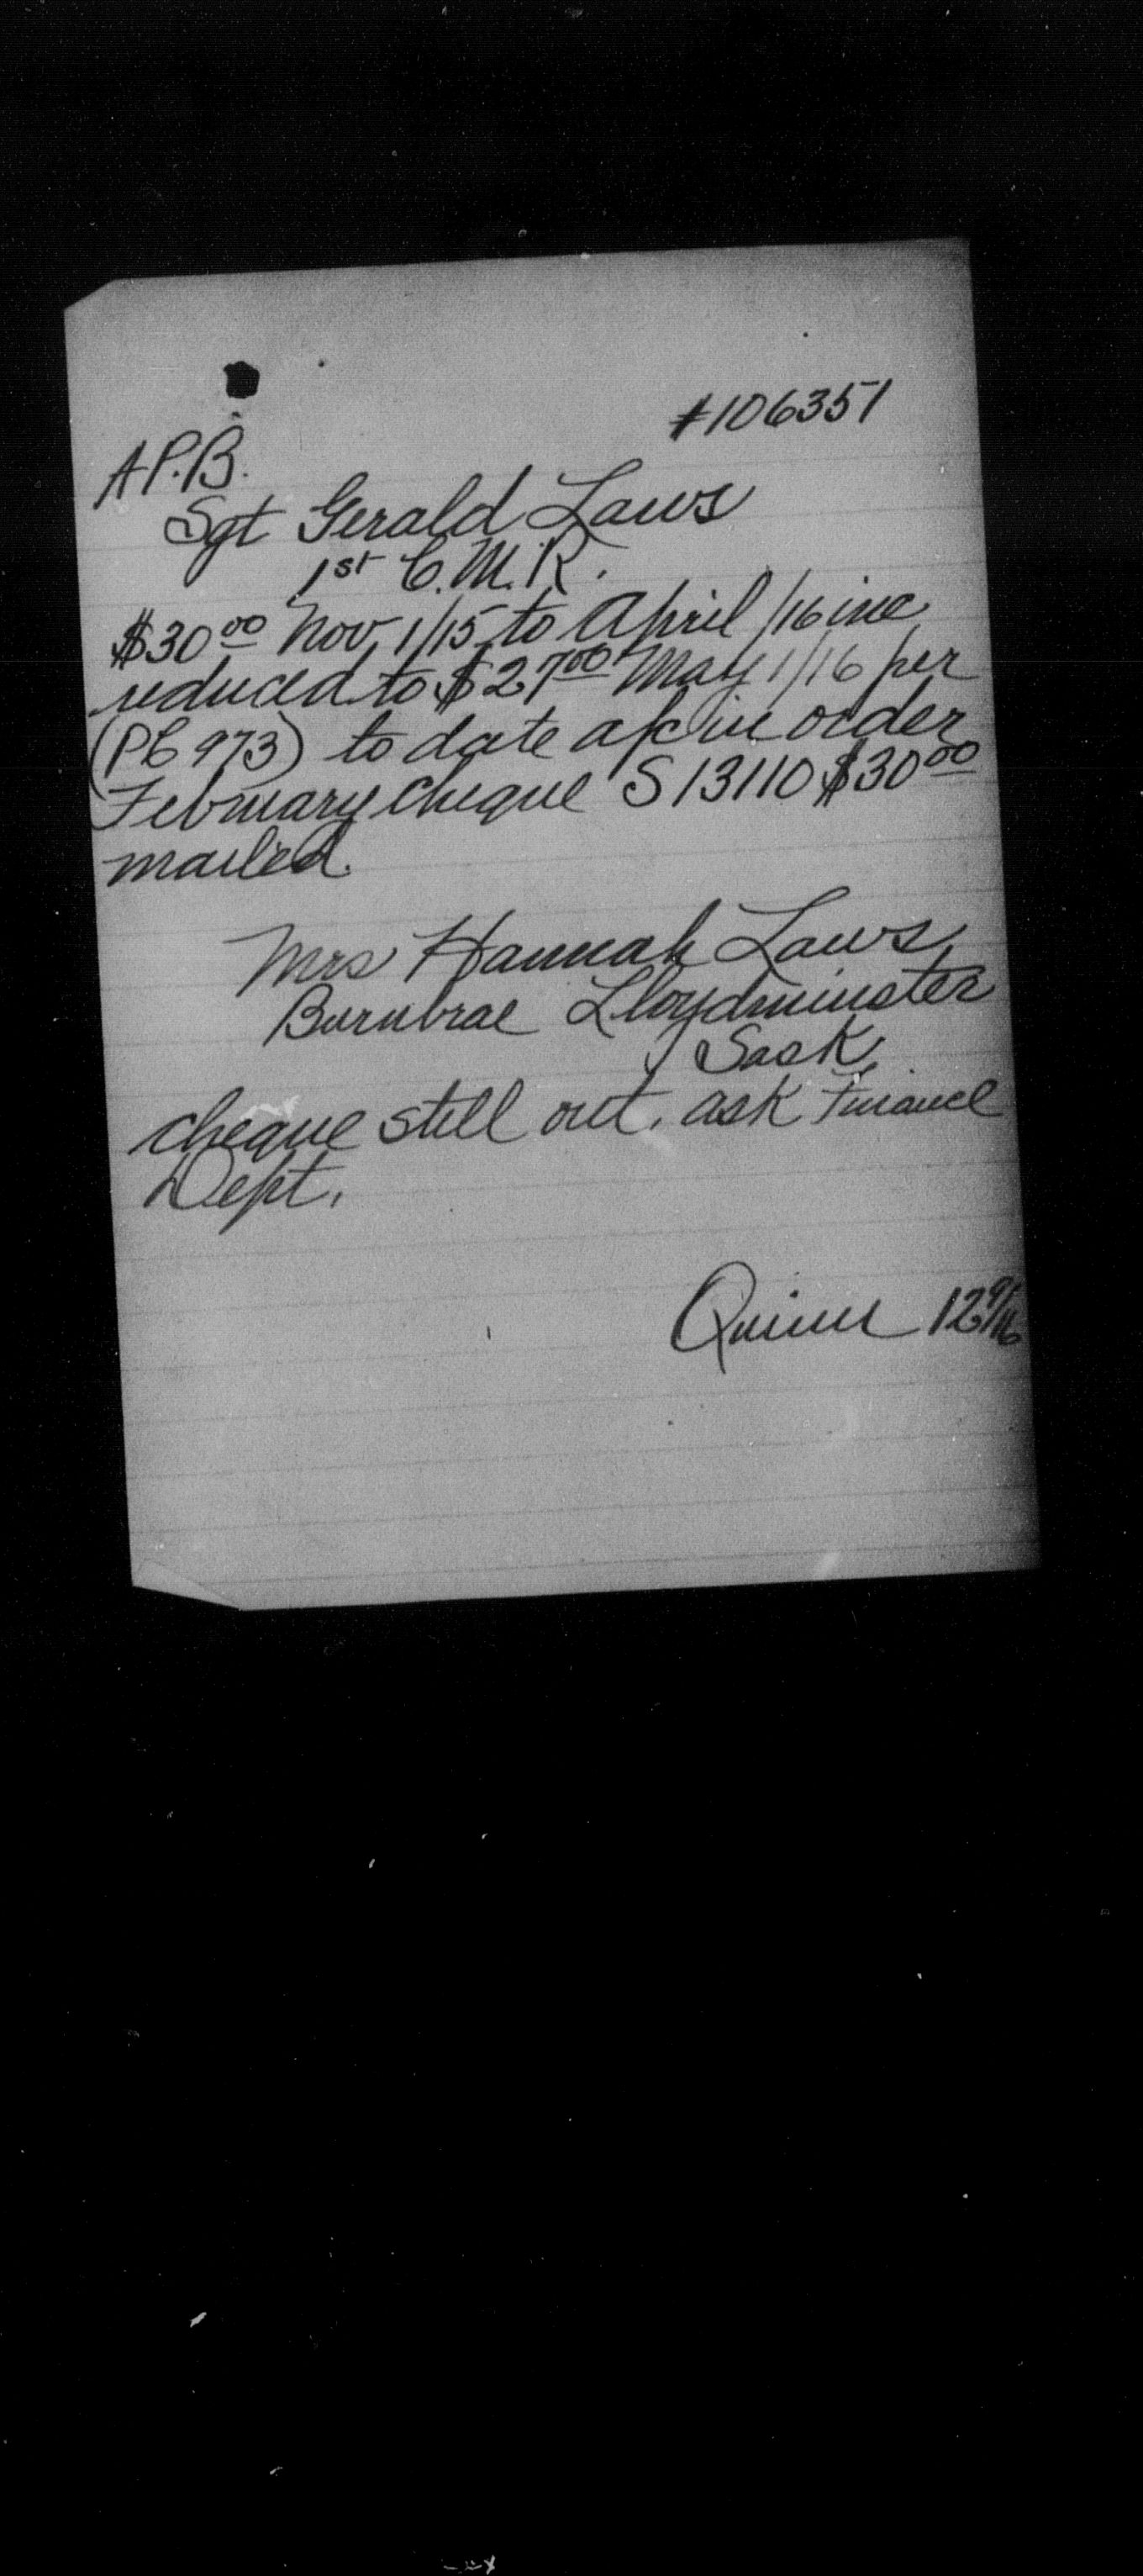 #106351
A.P.B.
Sgt Gerald Laws
1st C.M.R.
$30 00 Nov 1/15 to April /16 inc
reduced to $27 00 May 1/16 per
(PC 973) to date a/c in order
February cheque S 13110 $30 00
mailed.
Mrs Hannah Laws
Burnbrae Lloydminster
Sask
cheque still out. ask Finance
Dept.
Quinn 12 9/16